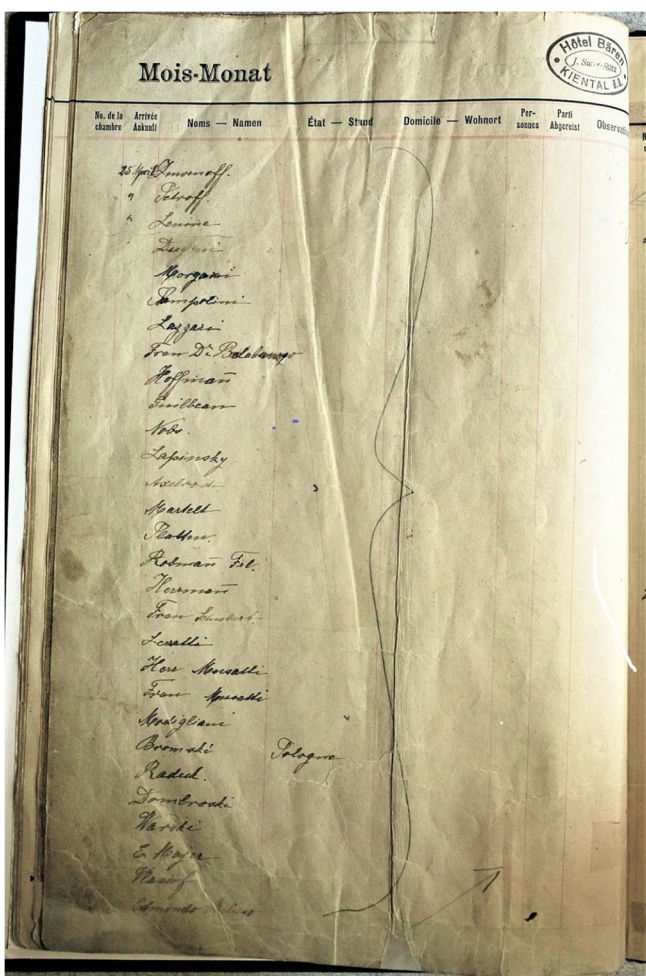 Mois-Monat
Hôtel Bären
KIENTAL B.O.
No. de la chambre Arrivée Ankunft Noms — Namen État — Stand Domicile — Wohnort Per-sonnes Parti Abgereist Observati
25 April Zinvenoff.
" Petrof.
" Lenine
Dugoni
Morgari
Pampolini
Lazzari
Frau Dr Balabanoff
Hoffmañ
Guilbeau
Nobs.
Lapinsky
Axelrod
Martelt
Platten.
Robmañ Frl.
Herrmañ
Frau
Seratti
Herr Musatti
Frau Musatti
Modigliani
Bromski Pologne
Radeck.
Dombroski
Warski
E. Meyer
Edmondo